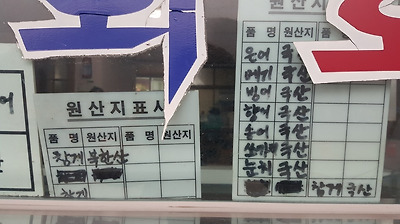 원산지표시
품 명 원산지 품 명 원산지
참게 북한산
참게
원산지
품 명 원산지 품 명
은어 국산
메기 국산
빙어 국산
향어 국산
송어 국산
쏘가리 국산
눈치 국산
참게 국산